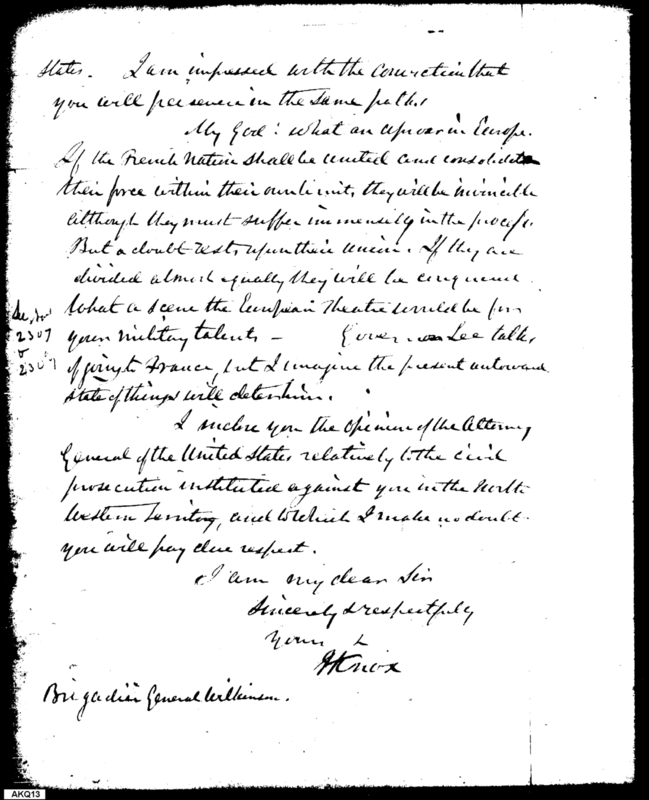 States. I am impressed with the conviction that
you will persevere in the same path.
My God! what an uproar in Europe.
If the French Nation shall be united and consolidate
their force within their own limits they will be invincible
although they must suffer immensely in the process.
But a doubt rests upon their union. If they are
divided almost equally they will be conquered.
What a scene the European Theatre would be for
your military talents — Governor Lee talks
of going to France, but I imagine the present untoward
state of things will determine.
I inclose you the opinion of the Attorney
General of the United States relatively to the civil
prosecution instituted against you in the North
Western Territory, and to which I make no doubt
you will pay due respect.
I am my dear Sir
Sincerely & respectfully
Yours
HKnox
Brigadier General Wilkinson.
2307
2307
AKQ13